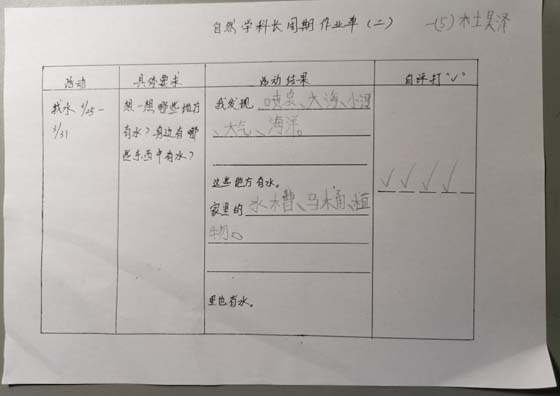 自然学科长周期作业单（二） 一(5) 杜士昊泽
活动 具体要求 活动结果 自评打"√"
找水 3/25-
3/31
想一想哪些地方
有水？身边有哪
些东西中有水？
我发现 喷泉、大海、小溪
、大气、海洋。
这些地方有水。
家里的 水槽、马桶、植
物。
里也有水。
√ √ √ √